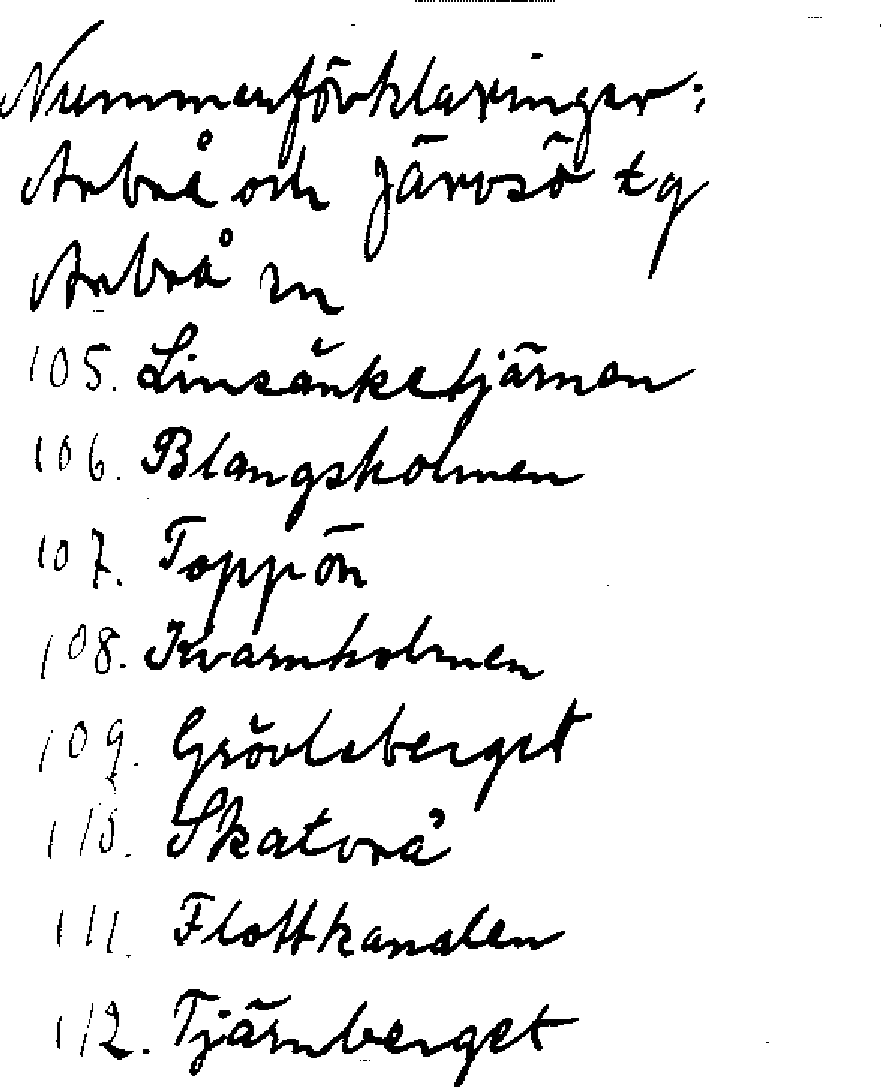 Nummerförklaringar:
Arbrå och Järvsö tg
Arbrå sn
105. Linsänketjärnen
106. Blangsholmen
107. Toppön
108. Kvarnholmen
109. Grövleberget
110. Skatvrå
111. Flottkanalen
112. Tjärnberget